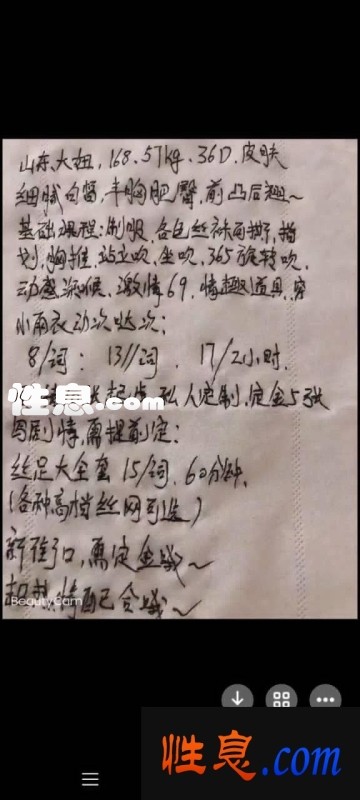 山东大妞，168.57kg.36D.皮肤
细腻白皙，丰胸肥臀，前凸后翘~
基础课程：制服.各色丝袜 指
划，胸推.站立吹，坐吹.365旋转吹，
动感深喉、激情69，情趣道具，穿
小雨衣动次哒次：
8/词： 13//词． 17/2小时.
性息.com
起步 私人定制，定金5张
写剧情，需提前定：
丝足大全套 15/词，60分钟，
(各种高档丝网 )
新街口，需定金哦~
情配合哦~
BeautyCam
性息.com